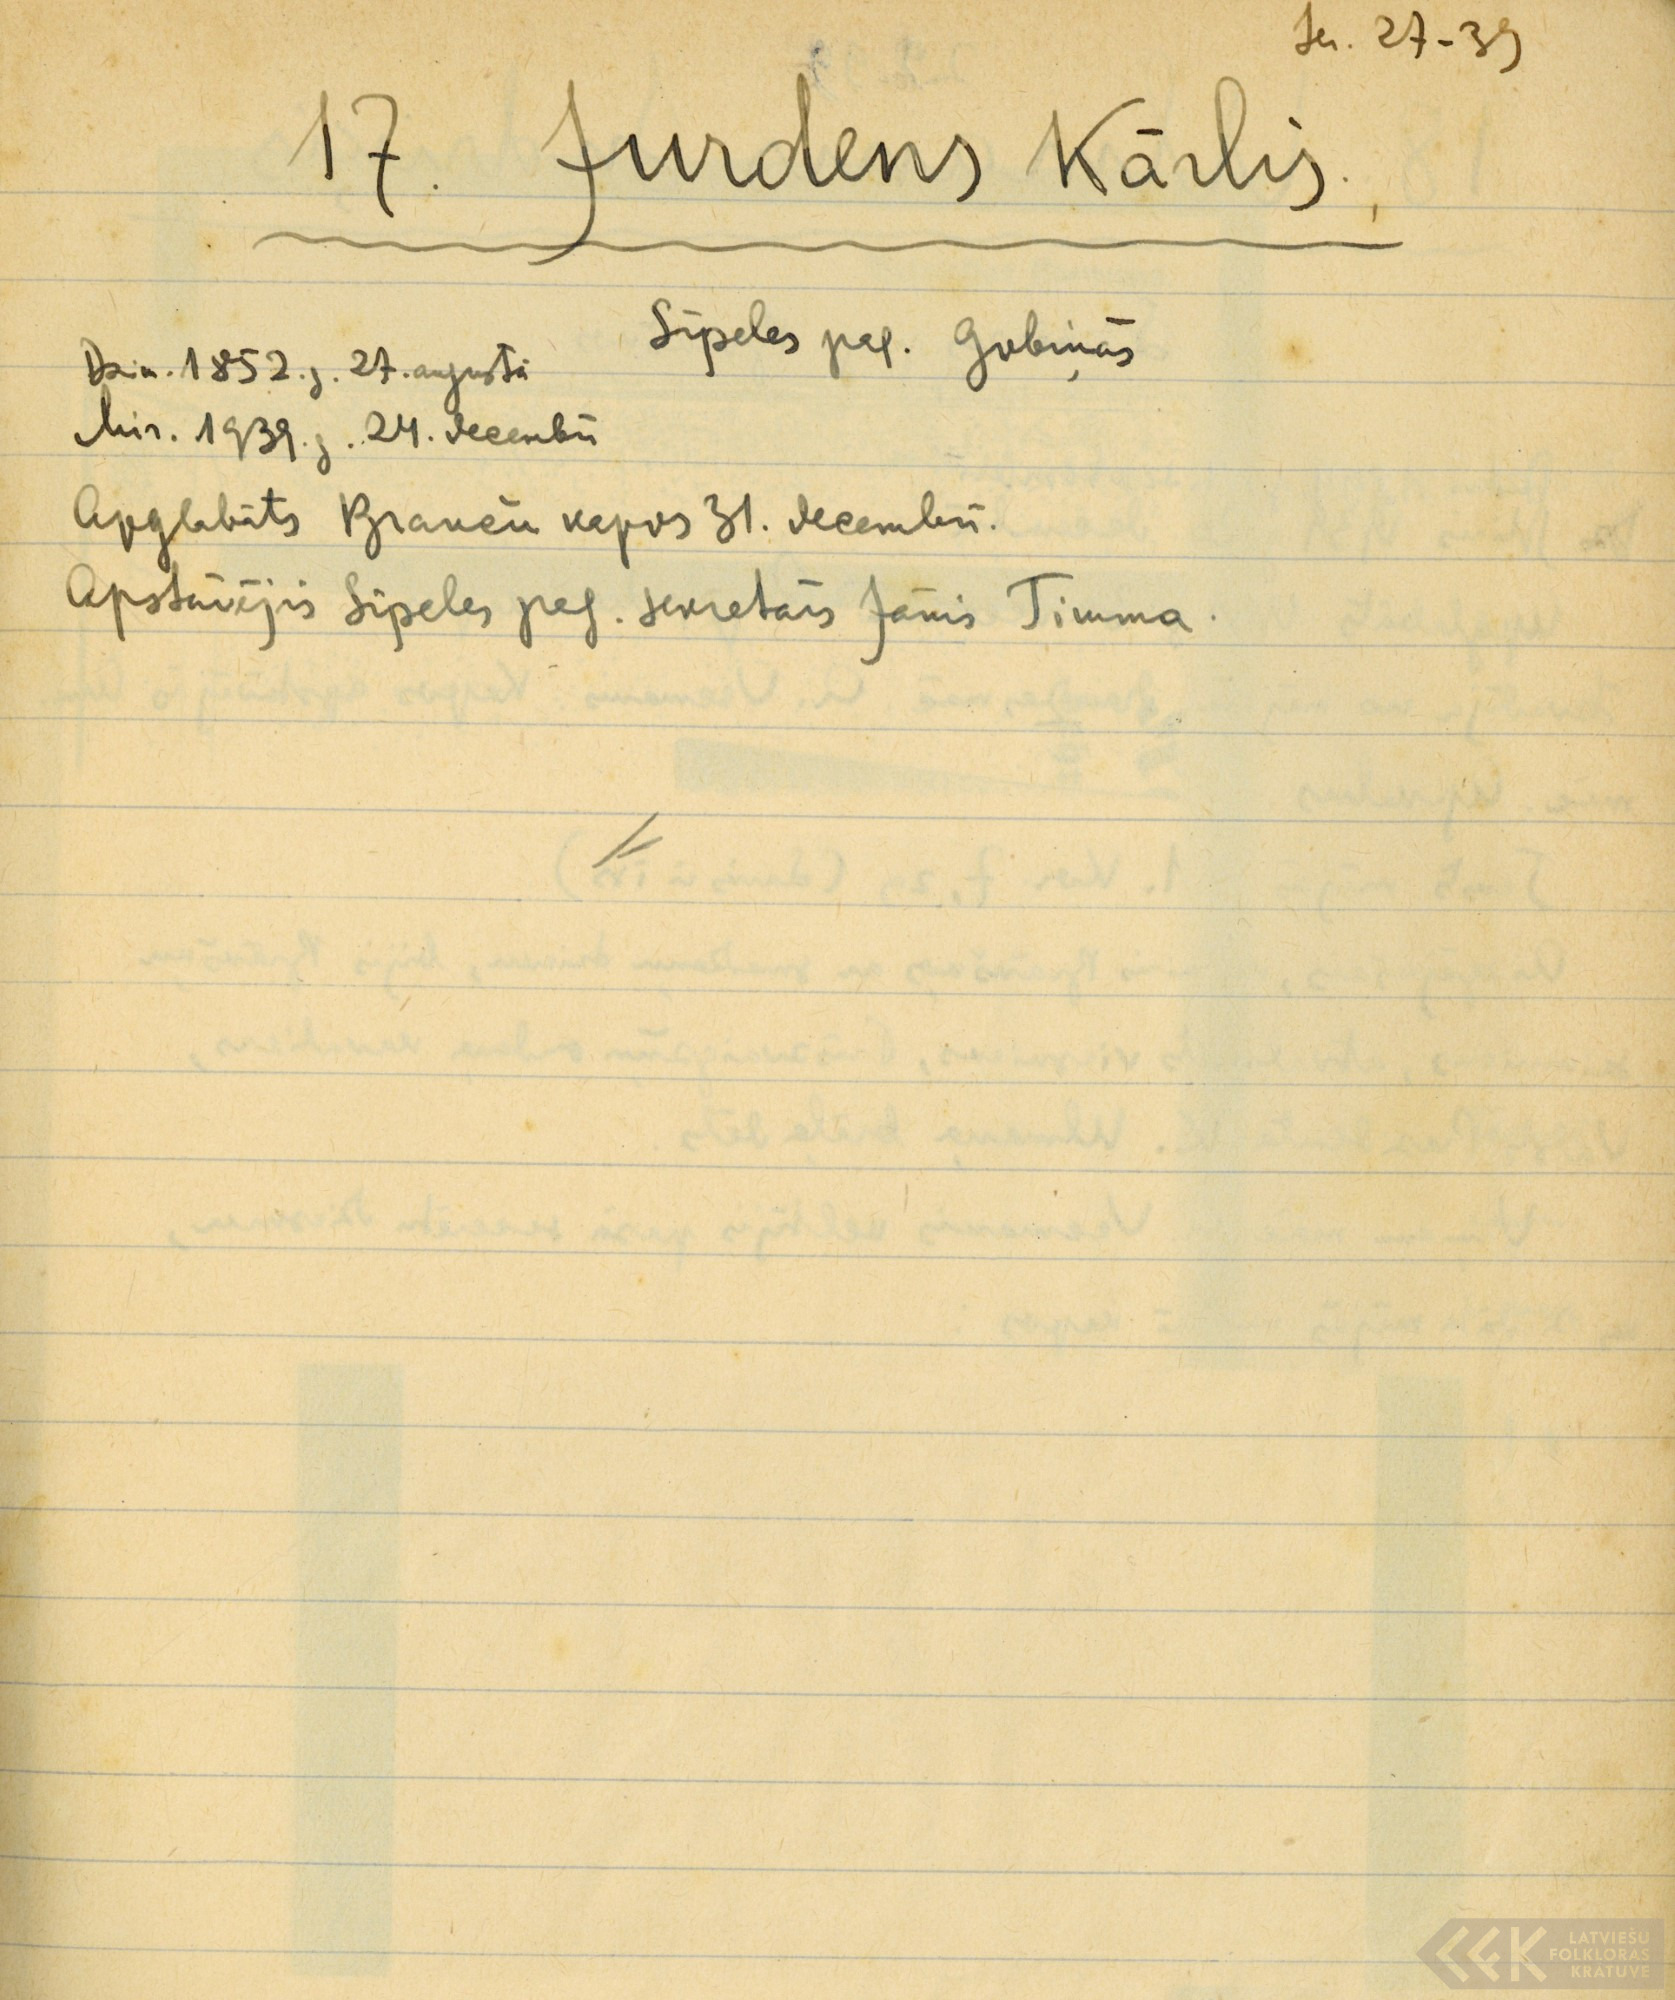 Ier. 27-39
17. Jurdens Kārlis.
Sīpeles pag. Gobiņās
Dzim. 1852. g. 27. augustā
Mir. 1939. g. 24. decembrī
Apglabāts Branču kapos 31. decembrī.
Apstāvējis Sīpeles pag. sekretārs Jānis Timma.
LATVIEŠU
FOLKLORAS
KRĀTUVE